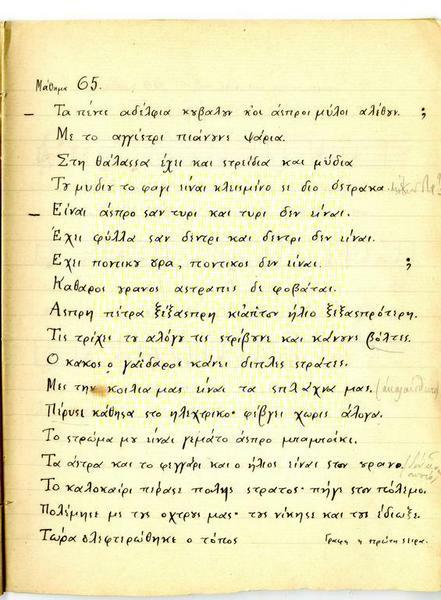 Μάθημα 65.
— Τα πέντε αδέλφια κυβαλυν κοι άσπροι μύλοι αλέθυν. ;
Με το αγγίστρι πιάνυνε ψάρια.
Στη θάλασσα έχει και στρείδια και μύδια
Τυ μυδιυ το φαγι είναι κλεισμένο σε διο όστρακα.
— Είναι άσπρο σαν τυρι και τυρι δεν είναι.
Έχει φύλλα σαν δεντρι και δεντρι δεν είναι.
Έχει ποντικυ υρα, ποντικος δεν είναι. ;
Καθαρος υρανος αστραπες δε φοβάται.
Ασπρη πέτρα ξέξασπρη κιαπτον ήλιο ξεξασπρότερη.
Τις τρίχες τυ αλόγυ τις στρίβυνε και κάνυνε βόλτες.
Ο κακος ο γαίδαρος κάνει διπλες στράτες.
Μες την κοιλια μας είναι τα σπλάχνα μας.
Πέρυσι κάθησα στο ηλεχτρικο· φεβγει χωρις άλογα.
Το στρώμα μυ είναι γεμάτο άσπρο μπαμπάκι.
Τα άστρα και το φεγγάρι και ο ήλιος είναι στον υρανο.
Το καλοκαίρι πέρασε πολης στρατος· πήγε στον πόλεμο.
Πολέμησε με τυς οχτρυς μας· τυς νίκησε και τυς έδιωξε.
Τώρα ολεφτερώθηκε ο τόπος Γραφη η πρώτη σειρα.